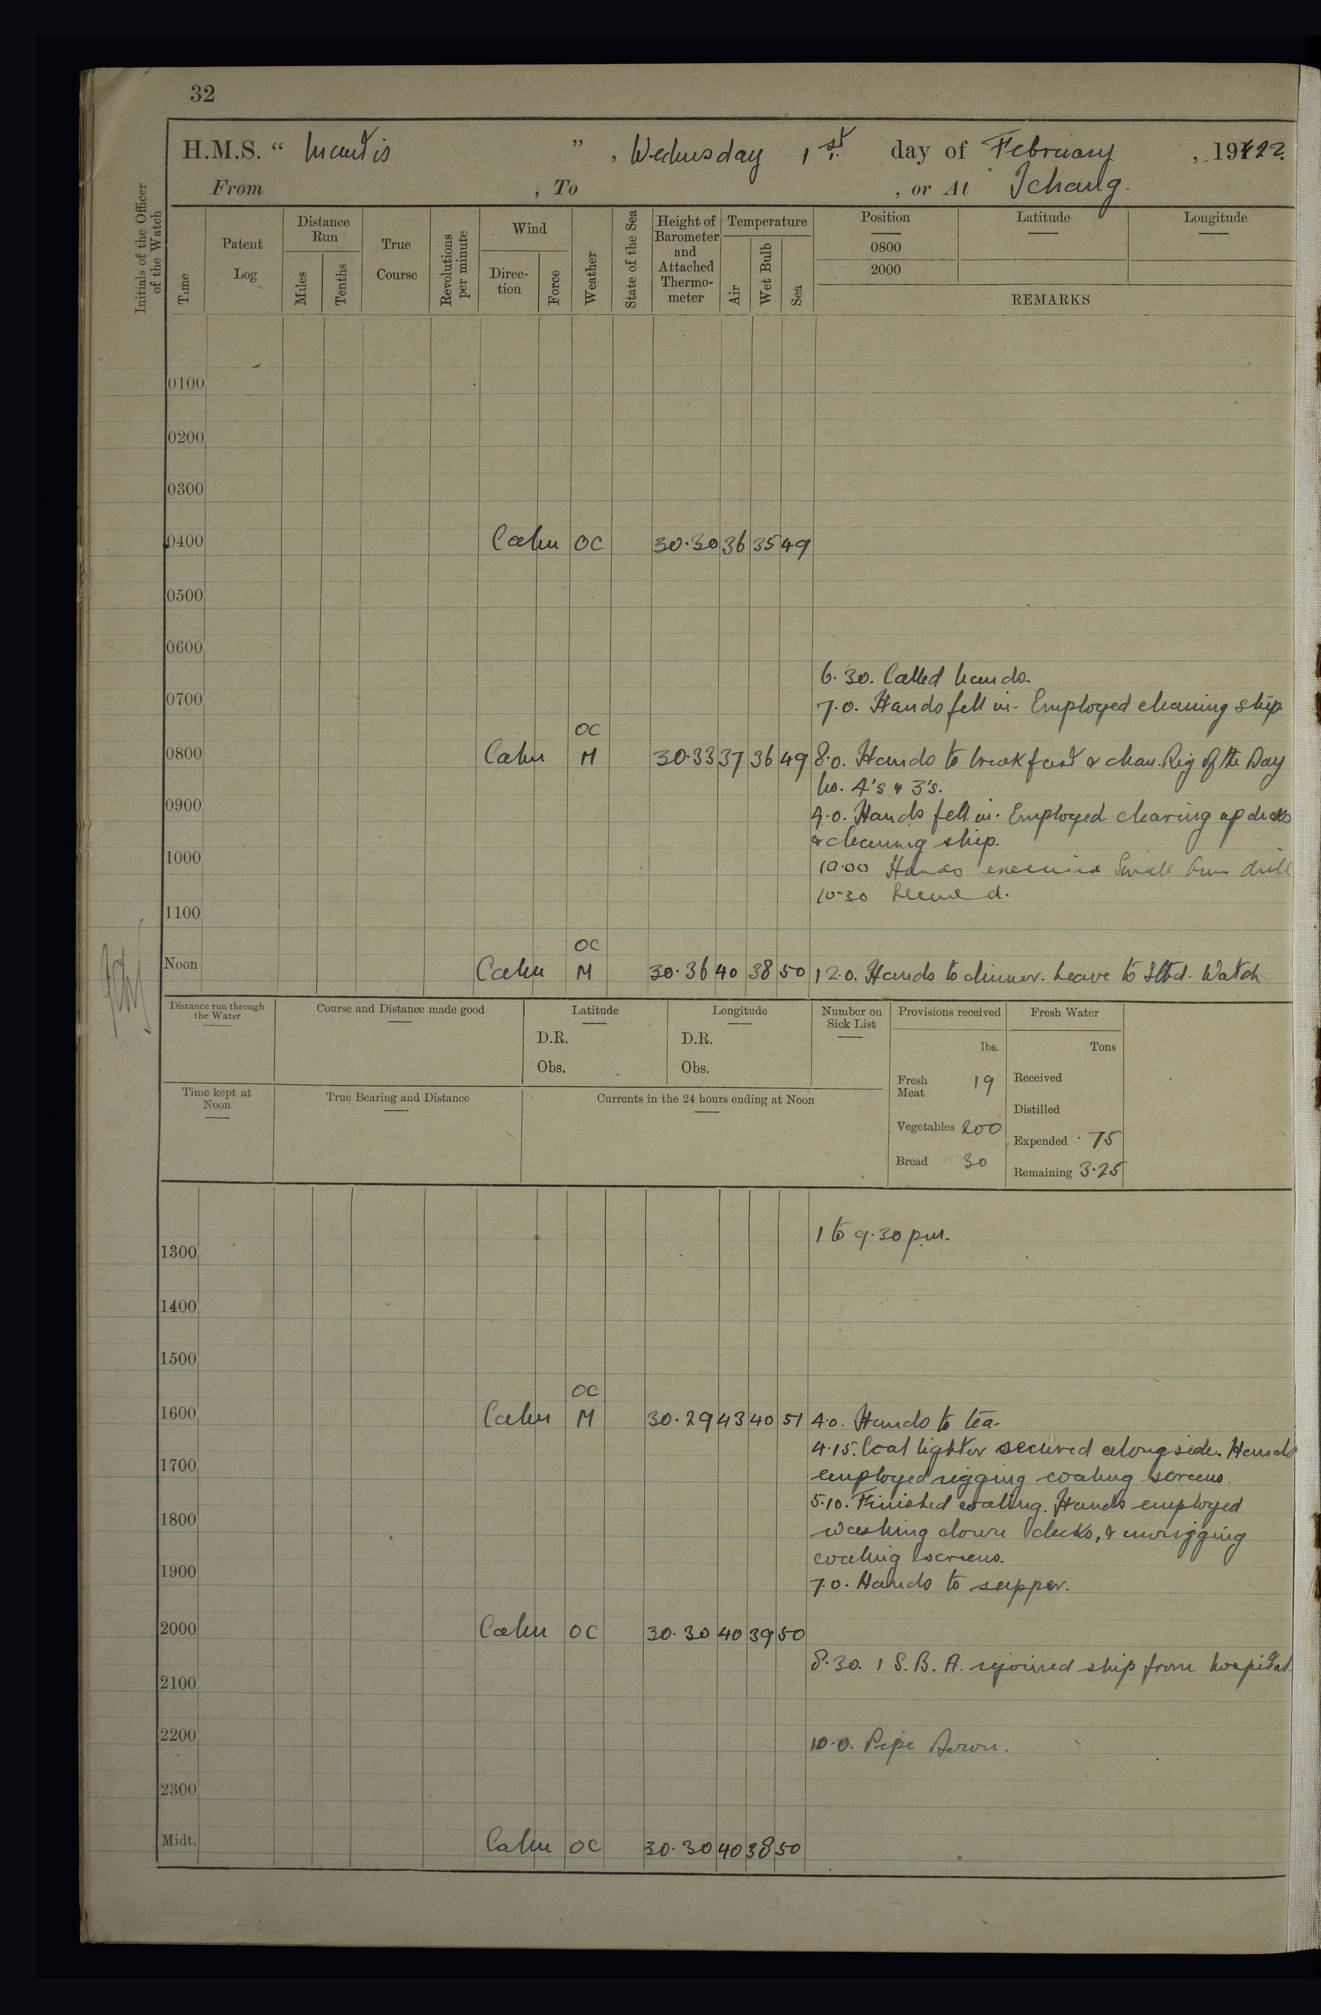 32
H.M.S. “ Mantis ” , Wednesday 1st. day of February , 1922.
From , To , or At Ichang.
Initials of the Officer of the Watch
Time
Patent Log
Distance Run
Miles
Tenths
True Course
Revolutions per minute
Wind
Direction
Force
Weather
State of the Sea
Height of Barometer and Attached Thermometer
Temperature
Air
Wet Bulb
Sea
Position
0800
2000
Latitude
Longitude
REMARKS
0100
0200
0300
0400 Calm OC 30.30 36 35 49
0500
0600
6.30. Called hands.
0700
7.0. Hands fell in. Employed cleaning ship
OC
0800 Calm M 30.33 37 36 49 8.0. Hands to breakfast & clean. Rig of the Day
No. 4's & 3's.
0900
9.0. Hands fell in. Employed clearing up decks
& cleaning ship.
1000
10.00 Hands exercised Small Arm drill
10-30 Secured.
1100
OC
Noon Calm M 30.36 40 38 50 12.0. Hands to dinner. Leave to Stbd. Watch
Distance run through the Water
Course and Distance made good
Latitude
D.R.
Obs.
Longitude
D.R.
Obs.
Number on Sick List
Provisions received
lbs.
Fresh Meat 19
Vegetables 200
Bread 30
Fresh Water
Tons
Received
Distilled
Expended .75
Remaining 3.25
Time kept at Noon
True Bearing and Distance
Currents in the 24 hours ending at Noon
1 to 9.30 p.m.
1300
1400
1500
OC
1600 Calm M 30.29 43 40 51 4.0. Hands to tea.
4.15. Coal lighter secured alongside. Hands
1700
employed rigging coaling screens.
5.10. Finished coaling. Hands employed
1800
washing down decks, & unrigging
coaling screens.
1900
7.0. Hands to supper.
2000 Calm OC 30.30 40 39 50
8.30. 1 S.B.A. rejoined ship from hospital.
2100
2200
10.0. Pipe Down.
2300
Midt. Calm OC 30.30 40 38 50